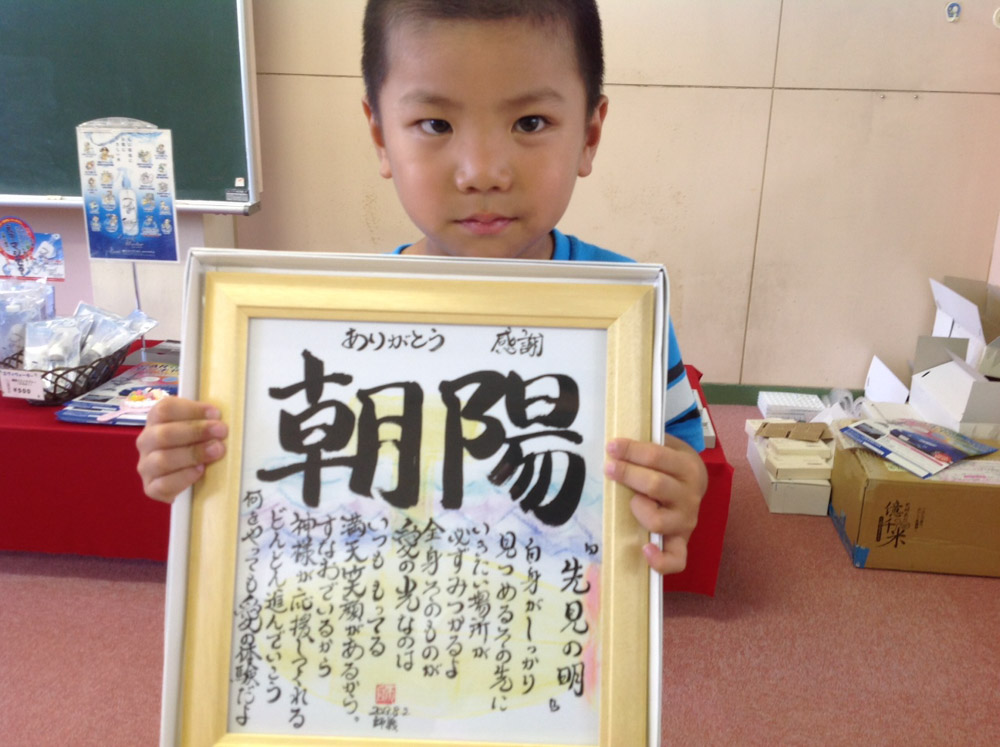 ありがとう　感謝
朝陽
“先見の明”
自身がしっかり
見つめるその先に
いきたい場所が
必ずみつかるよ
全身そのものが
愛の光なのは
いつも もってる
満天笑顔があるから。
すなおでいるから
神様が応援してくれる
どんどん進んでいこう
何をやっても愛の体験だよ
2013.8.2
億千米
¥500